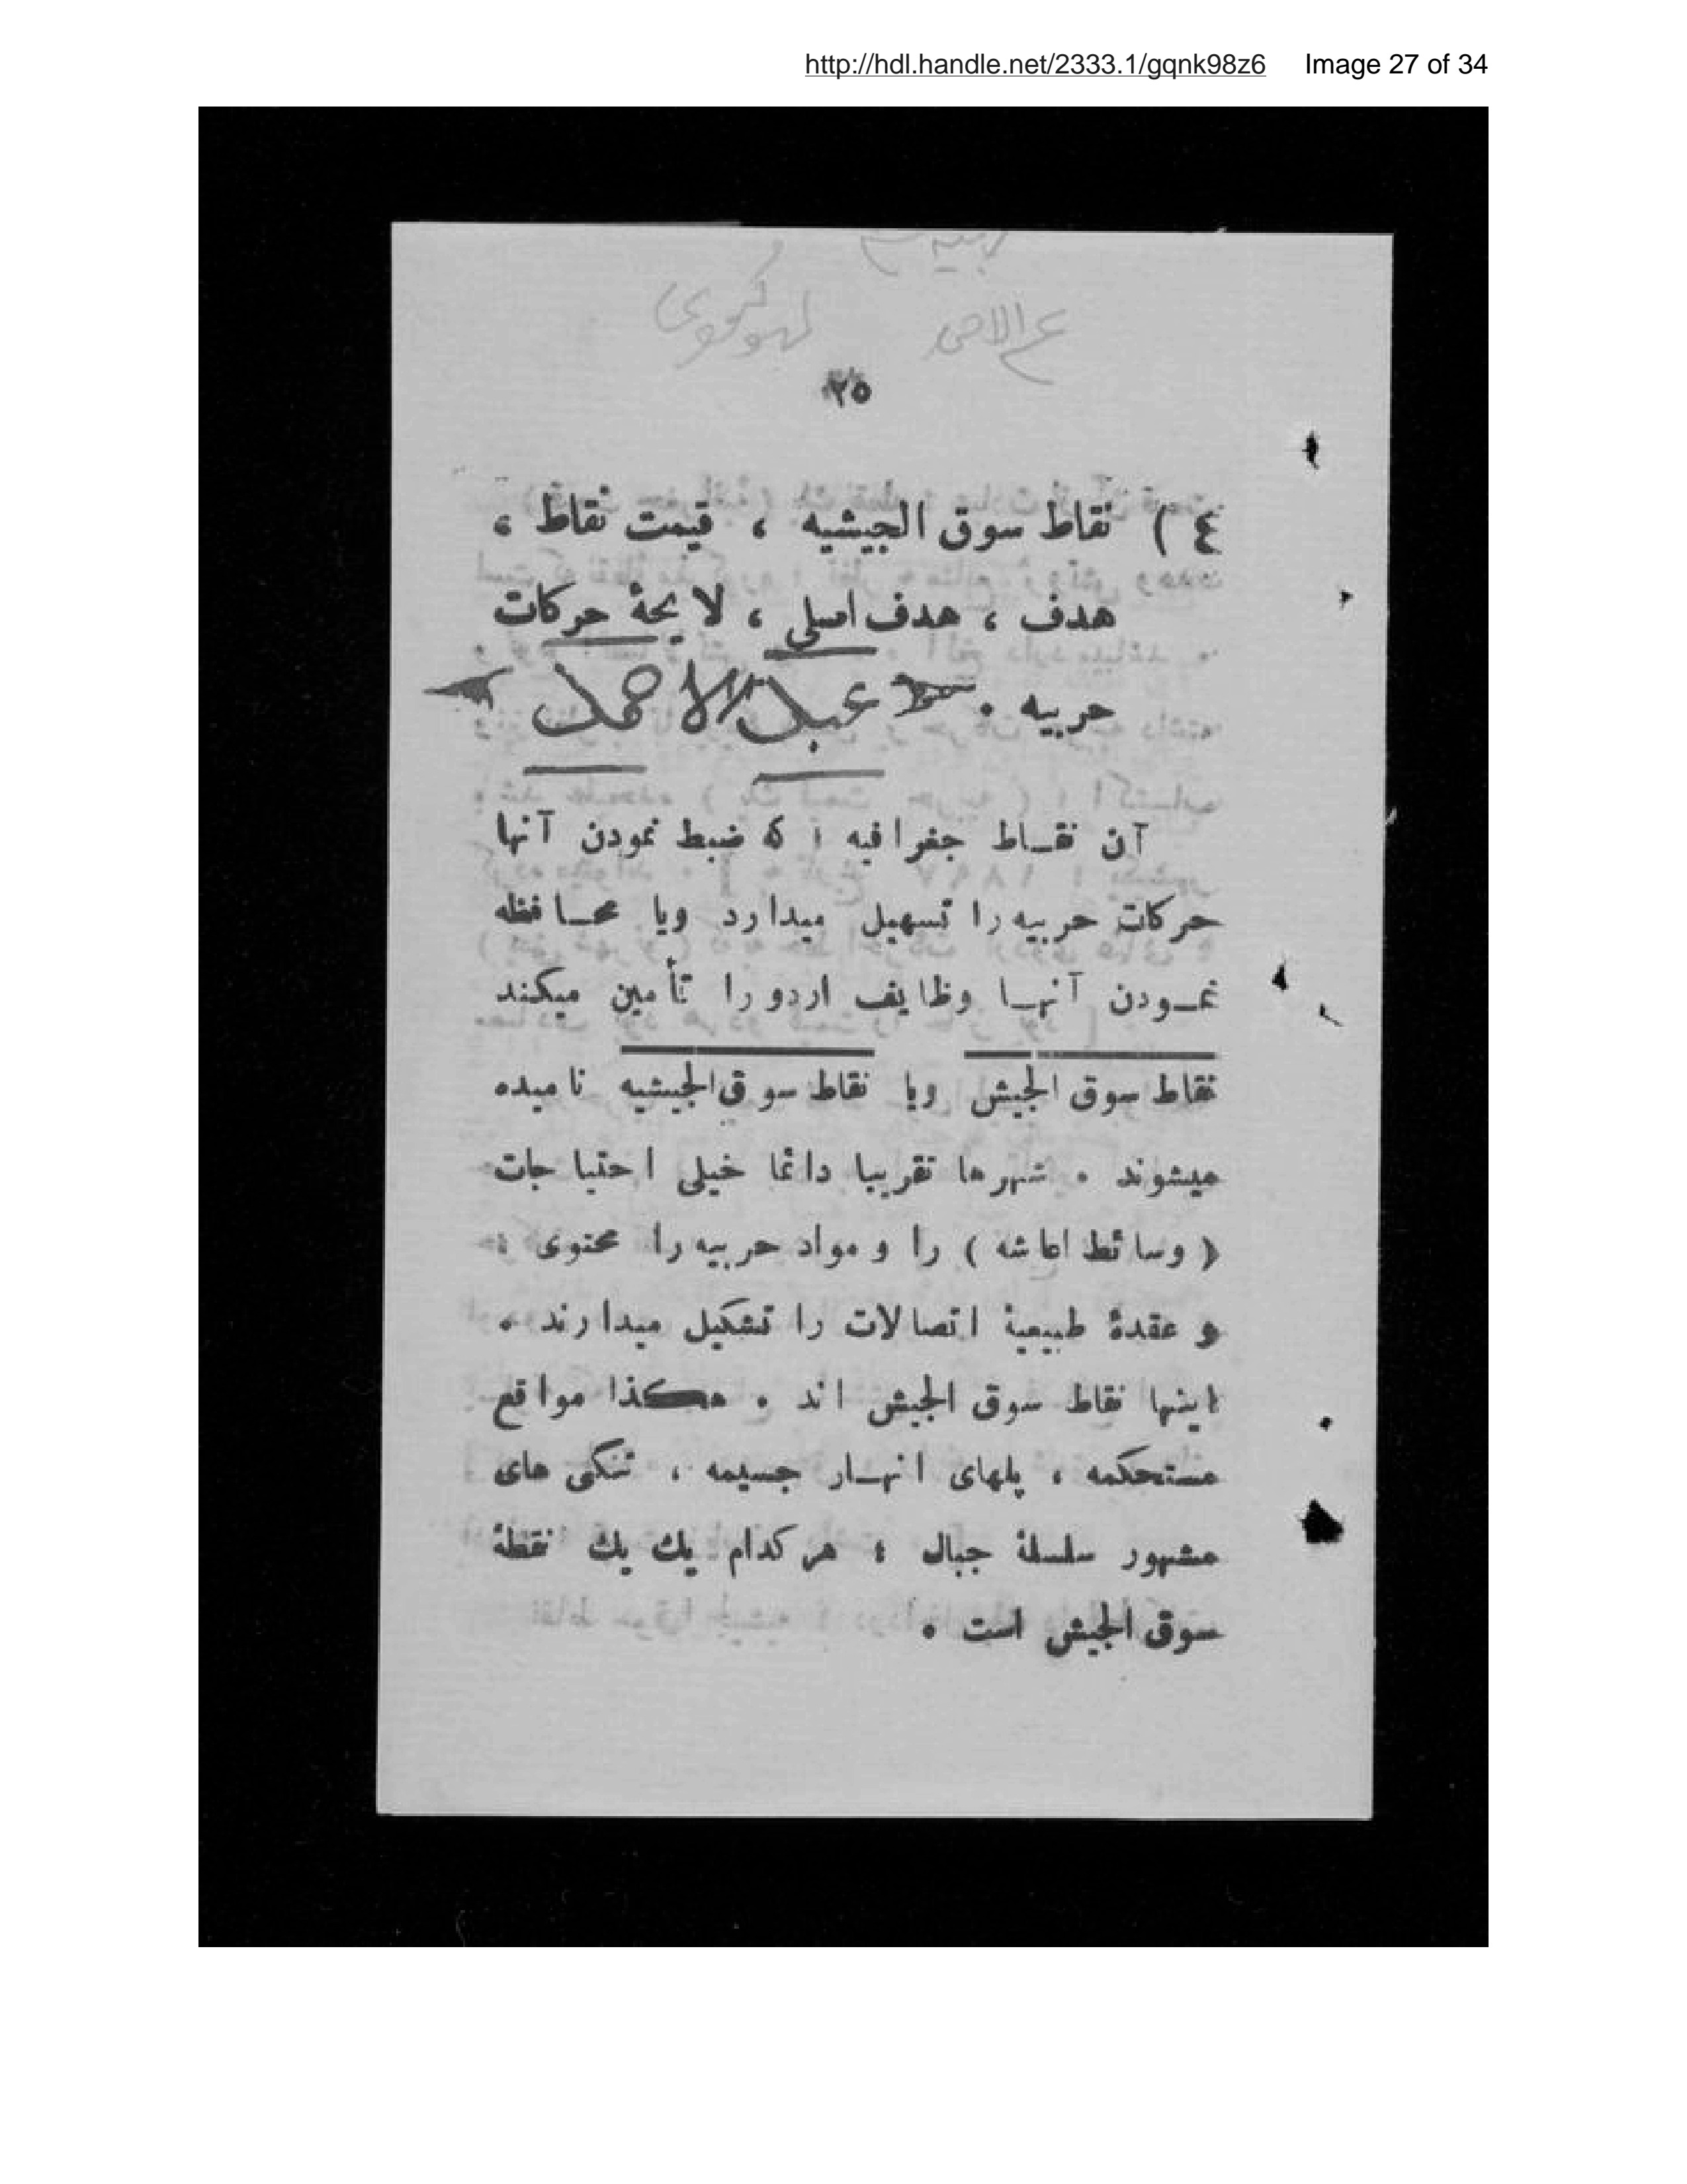 http://hdl.handle.net/2333.1/gqnk98z6 Image 27 of 34
٢٥
٤ ) نقاط سوق الجیشیه ، قیمت نقاط ،
هدف ، هدف اصلی ، لایحهٔ حرکات
حربیه . عبدالاحمد
آن نقـاط جغرافیه ؛ که ضبط نمودن آنها
حرکات حربیه را تسهیل میدارد ویا محـافظه
نمـودن آنهـا وظایف اردو را تأمین میکند
نقاط سوق الجیش ویا نقاط سوق الجیشیه نامیده
میشوند . شهرها تقریبا دائما خیلی احتیاجات
( وسائط اعاشه ) را و مواد حربیه را محتوی ؛
و عقدهٔ طبیعیهٔ اتصالات را تشکیل میدارند .
اینها نقاط سوق الجیش اند . هکذا مواقع
مستحکمه ، پلهای انهـار جسیمه ، تنکی های
مشهور سلسلهٔ جبال ؛ هر کدام یك یك نقطهٔ
سوق الجیش است .